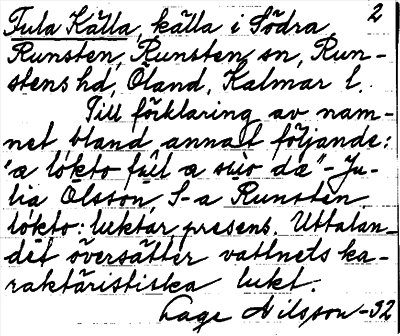 2
Fula Källa, källa i Södra
Runsten, Runsten sn, Run-
stens hd, Öland, Kalmar l.
Till förklaring av nam-
net bland annat följande:
"a lókto fúl a súo da" - Ju-
lia Olsson S-a Runsten
lókto: luktar presens. Uttalan-
det översätter vattnets ka-
raktäristiska lukt.
Lage Nilsson -32